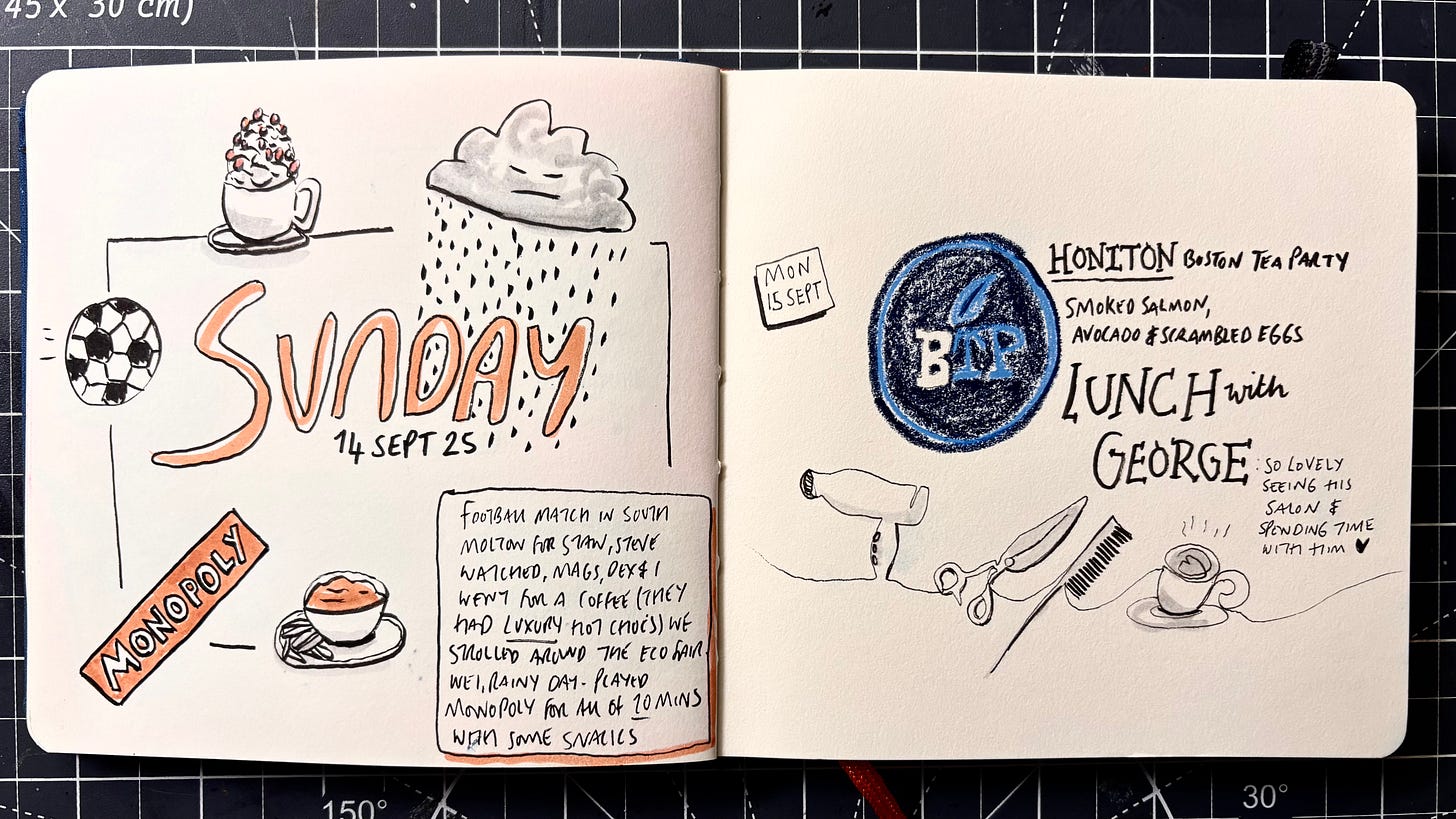 45 x 30 cm)
SUNDAY
14 SEPT 25
MONOPOLY
FOOTBALL MATCH IN SOUTH
MOLTON FOR STAN, STEVE
WATCHED, MAGS, DEX & I
WENT FOR A COFFEE (THEY
HAD LUXURY HOT CHOCS) WE
STROLLED AROUND THE ECO FAIR.
WET, RAINY DAY - PLAYED
MONOPOLY FOR ALL OF 20 MINS
WITH SOME SNACKS
MON
15 SEPT
BTP
HONITON BOSTON TEA PARTY
SMOKED SALMON,
AVOCADO & SCRAMBLED EGGS
LUNCH with
GEORGE
: SO LOVELY
SEEING HIS
SALON &
SPENDING TIME
WITH HIM ♥
150°
30°